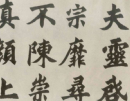 夫靈
宗靡尋
不陳崇
真上